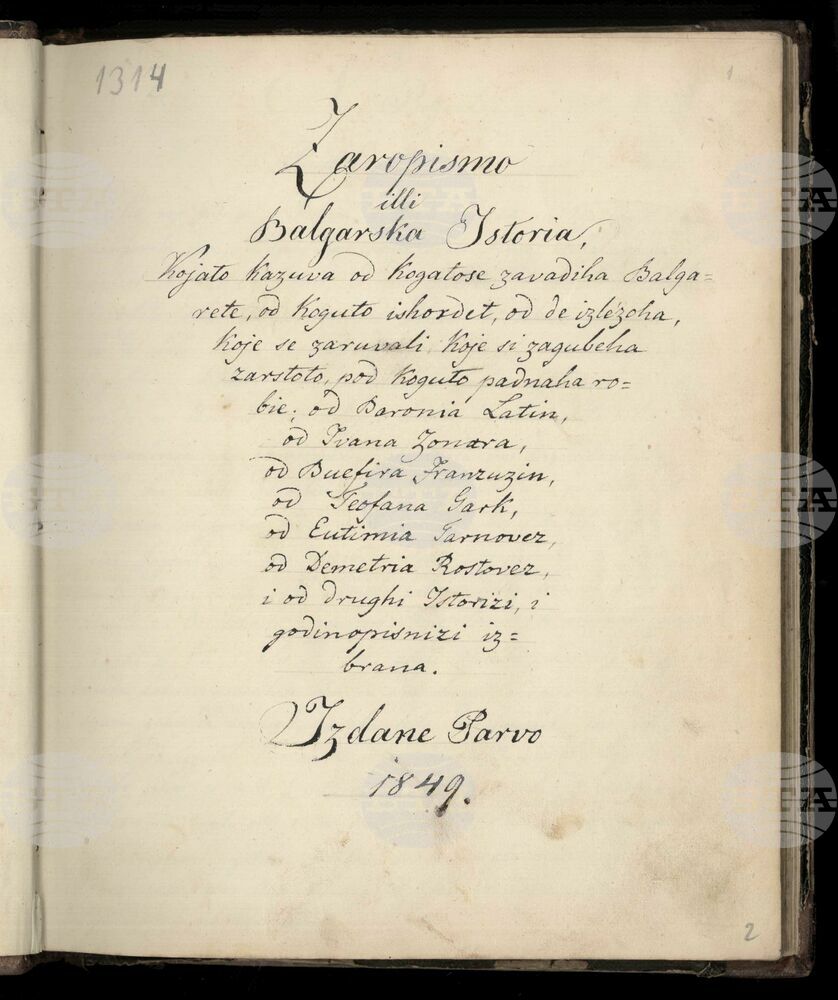 1314
1
Zaropismo
illi
Balgarska Istoria,
Kojato kazuva od kogatose zavadiha Balga=
rete, od koguto ishordet, od de izlezoha,
koje se zaruvali koje si zagubeha
zarstoto, pod koguto padnaha ro=
bie; od Baronia Latin,
od Ivana Zonara,
od Buefira Franzuzin,
od Teofana Gark,
od Eutimia Tarnovez,
od Demetria Rostovez,
i od drughi Istorizi, i
godinopisnizi iz=
brana.
Izdane Parvo
1849.
2